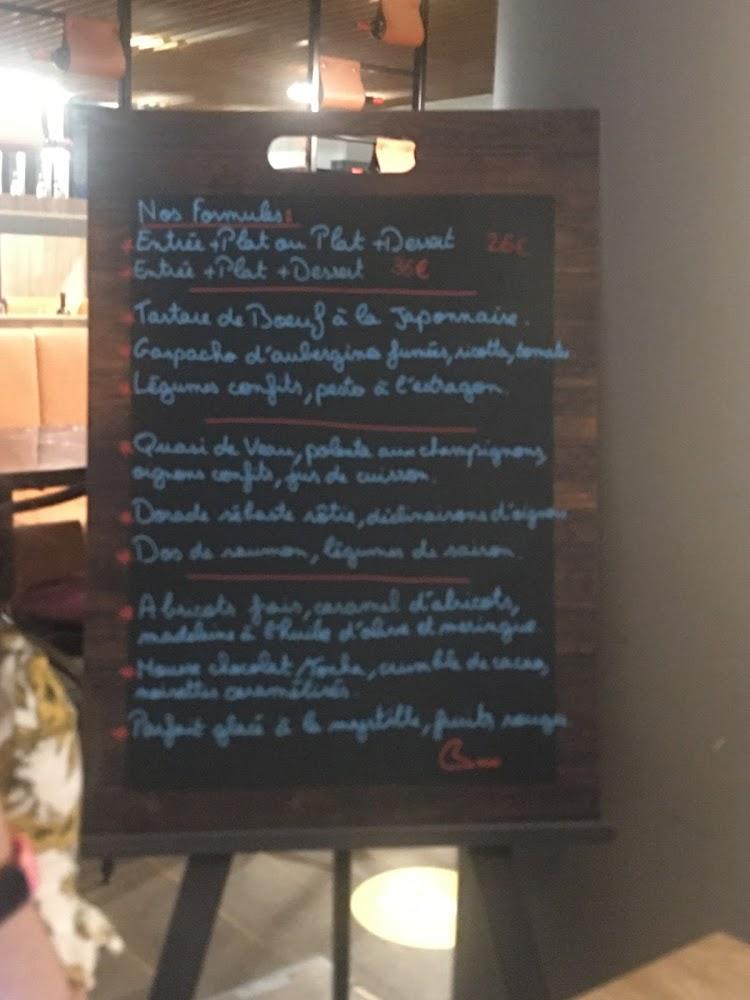 Nos Formules:
Entrée + Plat ou Plat + Dessert 26€
Entrée + Plat + Dessert 36€
Tartare de Boeuf à la Japonnaire.
Gaspacho d'aubergines fumées, ricotta, tomate
Légumes confits, pesto à l'estragon.
Quasi de Veau, polenta aux champignons,
oignons confits, jus de cuisson.
Dorade sébaste rôtie, déclinaisons d'oignons
Dos de saumon, légumes de saison.
Abricots frais, caramel d'abricots,
madeleine à l'huile d'olive et meringue.
Mousse chocolat, crumble de cacao,
noisettes caramélisés.
Parfait glacé à la myrtille, fruits rouges